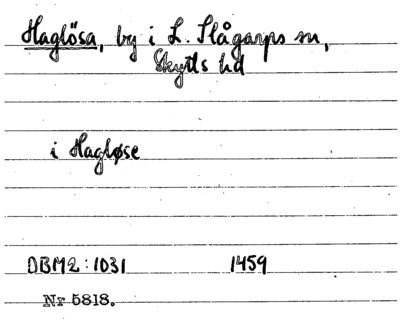 Haglösa, by i L. Slågarps sn,
Skytts hd
i Hagløse
DBM2:1031 1459
Nr 5818.